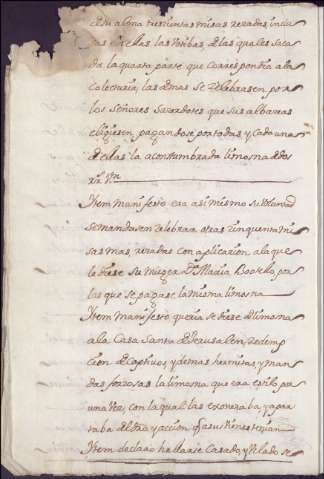 esu alma trescientas misas rezadas inclu
sas en ellas las Votibas, de las quales saca
da la quarta parte que correspondia a la
Colecturia, las demas se zelebrasen por
los Señores Sazerdotes que sus albaceas
eligiesen, pagandose por todas, y cada una
de ellas la acostumbrada limosna de dos
rs Vn
Item manifesto era asi mismo su Voluntad
se mandasen zelebrar otras zinquenta mi
sas mas, rezadas con aplicazion al a que
lo fuese su muger Da Maria Botello, por
las que se pagase la misma limosna
Item manifesto queria se diese de limosna
a la Casa Santa de Jerusalen, redemp
cion de Captivos, y demas hermitas, y man
das forzosas la limosna que era estilo por
una vez, con la qual las exoneraba y apar
taba del dro y accion qe a sus vienes tenian
Item declaro hallarse Casado, y Velado se